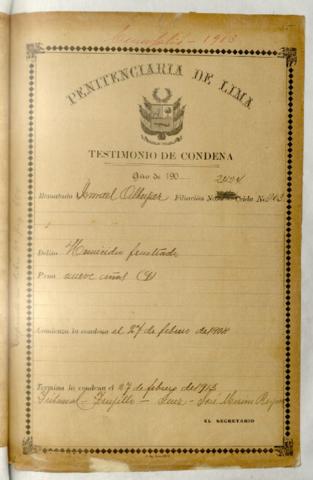 1913
PENITENCIARIA DE LIMA
TESTIMONIO DE CONDENA
Año de 190
Rematado Ismael Filiación No. Celda No.
Delito Homicidio frustrado
Pena nueve años (9)
Comienza la condena al 27 de febrero de 1908
Termina la condena el 27 de febrero de 1913
Tribunal - Trujillo - Juez - José
EL SECRETARIO